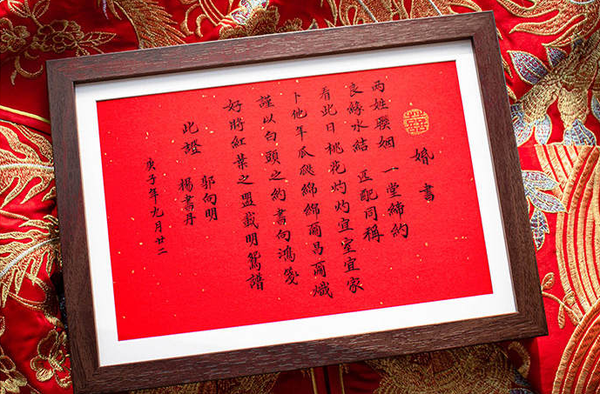 囍
婚書
兩姓聯姻 一堂締約
良緣永結 匹配同稱
看此日桃花灼灼宜室宜家
卜他年瓜瓞綿綿爾昌爾熾
謹以白頭之約書向鴻箋
好將紅葉之盟載明鴛譜
此證
向明
楊書丹
庚子年九月廿二